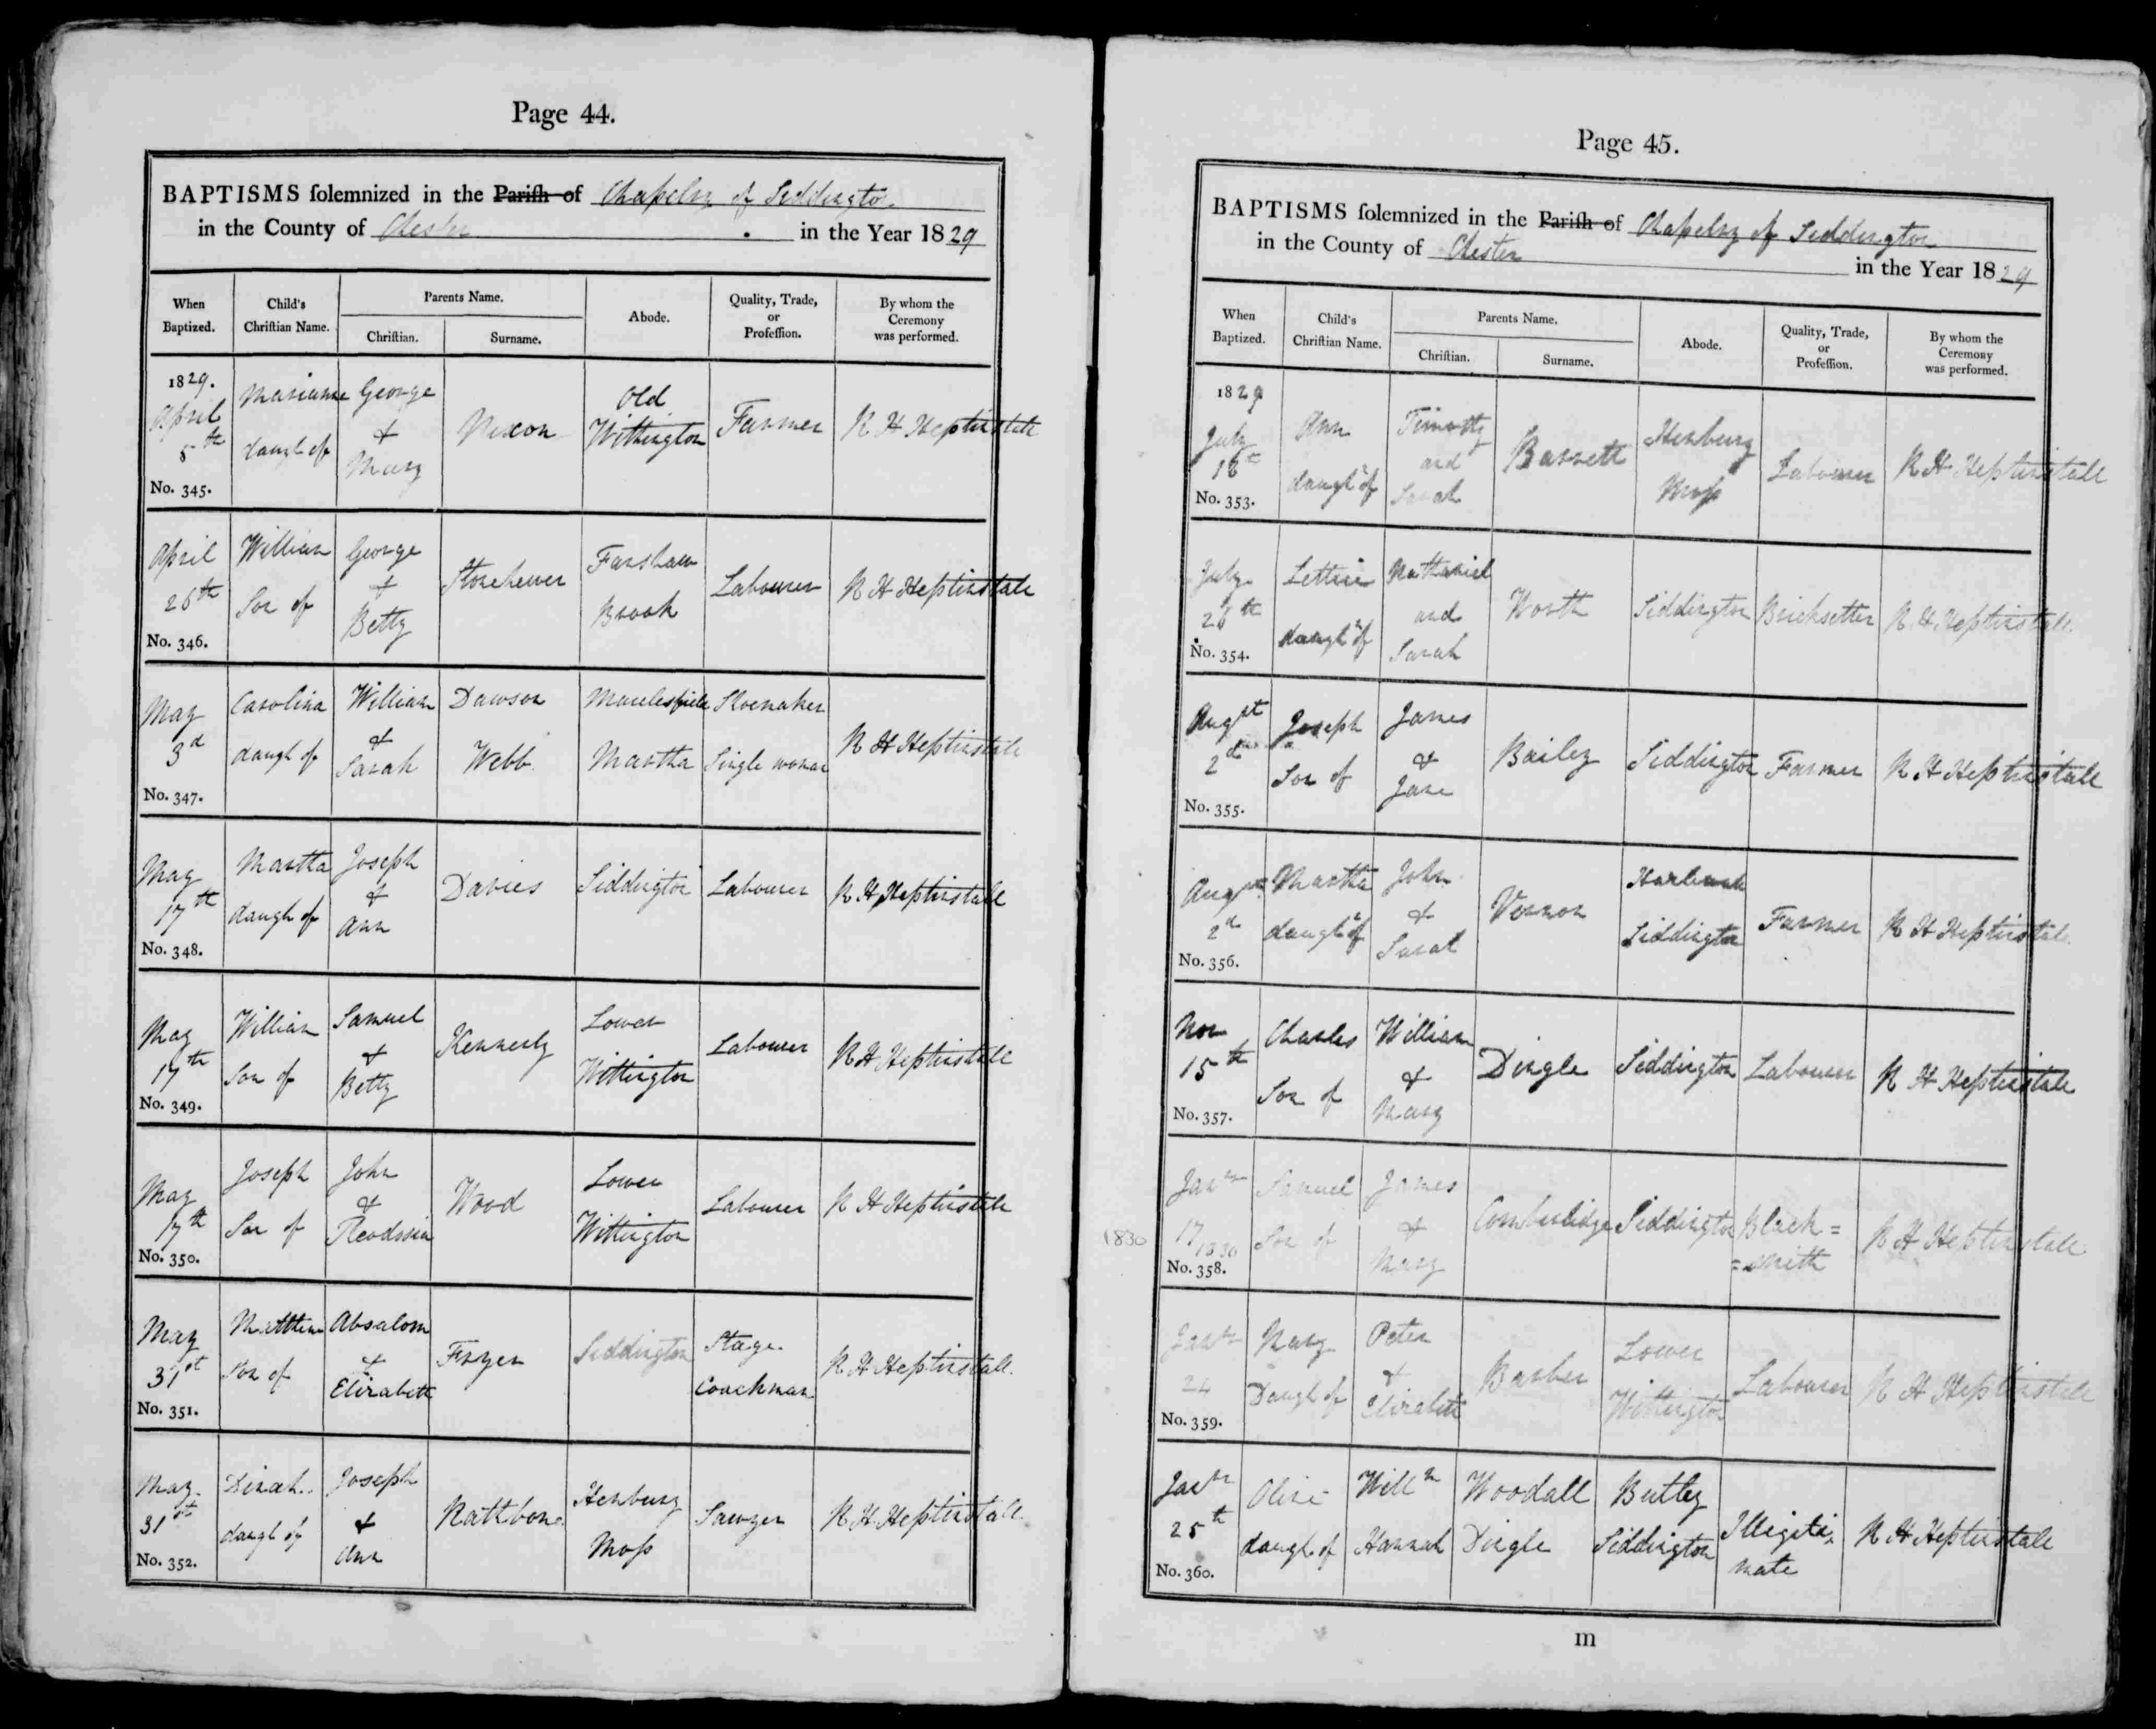 Page 44.
BAPTISMS ſolemnized in the Pariſh of Chapelry of Siddington
in the County of Chester in the Year 1829
When Baptized.
Child's Chriſtian Name.
Parents Name.
Chriſtian.
Surname.
Abode.
Quality, Trade, or Profeſſion.
By whom the Ceremony was performed.
1829. April 5th No. 345.
Marianne daugh of
George & Mary
Nixon
Old Withington
Farmer
R H Heptinstall
April 26th No. 346.
William Son of
George & Betty
Stonehewer
Fanshaw Brook
Labourer
R H Heptinstall
May 3d No. 347.
Carolina daugh of
William & Sarah
Dawson Webb
Macclesfield Martha
Shoemaker Single woman
R H Heptinstall
May 17th No. 348.
Martha daugh of
Joseph & Ann
Davies
Siddington
Labourer
R H Heptinstall
May 17th No. 349.
William Son of
Samuel & Betty
Kennerly
Lower Withington
Labourer
R H Heptinstall
May 17th No. 350.
Joseph Son of
John & Theodosia
Wood
Lower Withington
Labourer
R H Heptinstall
May 31st No. 351.
Matthew Son of
Absalom & Elizabeth
Fryer
Siddington
Stage Coachman
R H Heptinstall.
May 31st No. 352.
Dinah daugh of
Joseph & Ann
Rathbone
Henbury Moſs
Sawyer
R H Heptinstall
Page 45.
BAPTISMS ſolemnized in the Pariſh of Chapelry of Siddington
in the County of Chester in the Year 1829
When Baptized.
Child's Chriſtian Name.
Parents Name.
Chriſtian.
Surname.
Abode.
Quality, Trade, or Profeſſion.
By whom the Ceremony was performed.
1829 July No. 353.
Ann daughr of
Timothy and Sarah
Barrett
Henbury Moſs
Labourer
R H Heptinstall
July 26th No. 354.
daughr of
Nathaniel and Sarah
Worth
Siddington
Bricksetter
R H Heptinstall.
Augst 2d No. 355.
Joseph Son of
James & Jane
Bailey
Siddington
Farmer
R H Heptinstall
Augst 2d No. 356.
Martha daughr of
John & Sarah
Vernon
Siddington
Farmer
R H Heptinstall
Nov 15th No. 357.
Charles Son of
William & Mary
Dingle
Siddington
Labourer
R H Heptinstall
1830
Jany 17 1830 No. 358.
Samuel Son of
James & Mary
Comberlidge
Siddington
Black= =smith
R H Heptinstall
Jany 24 No. 359.
Mary Daugh of
Peter & Elizabeth
Barber
Lower Withington
Labourer
R H Heptinstall
Jany 25th No. 360.
Olive daugh of
Willm Hannah
Woodall Dingle
Butley Siddington
Illigiti- mate
R H Heptinstall
m